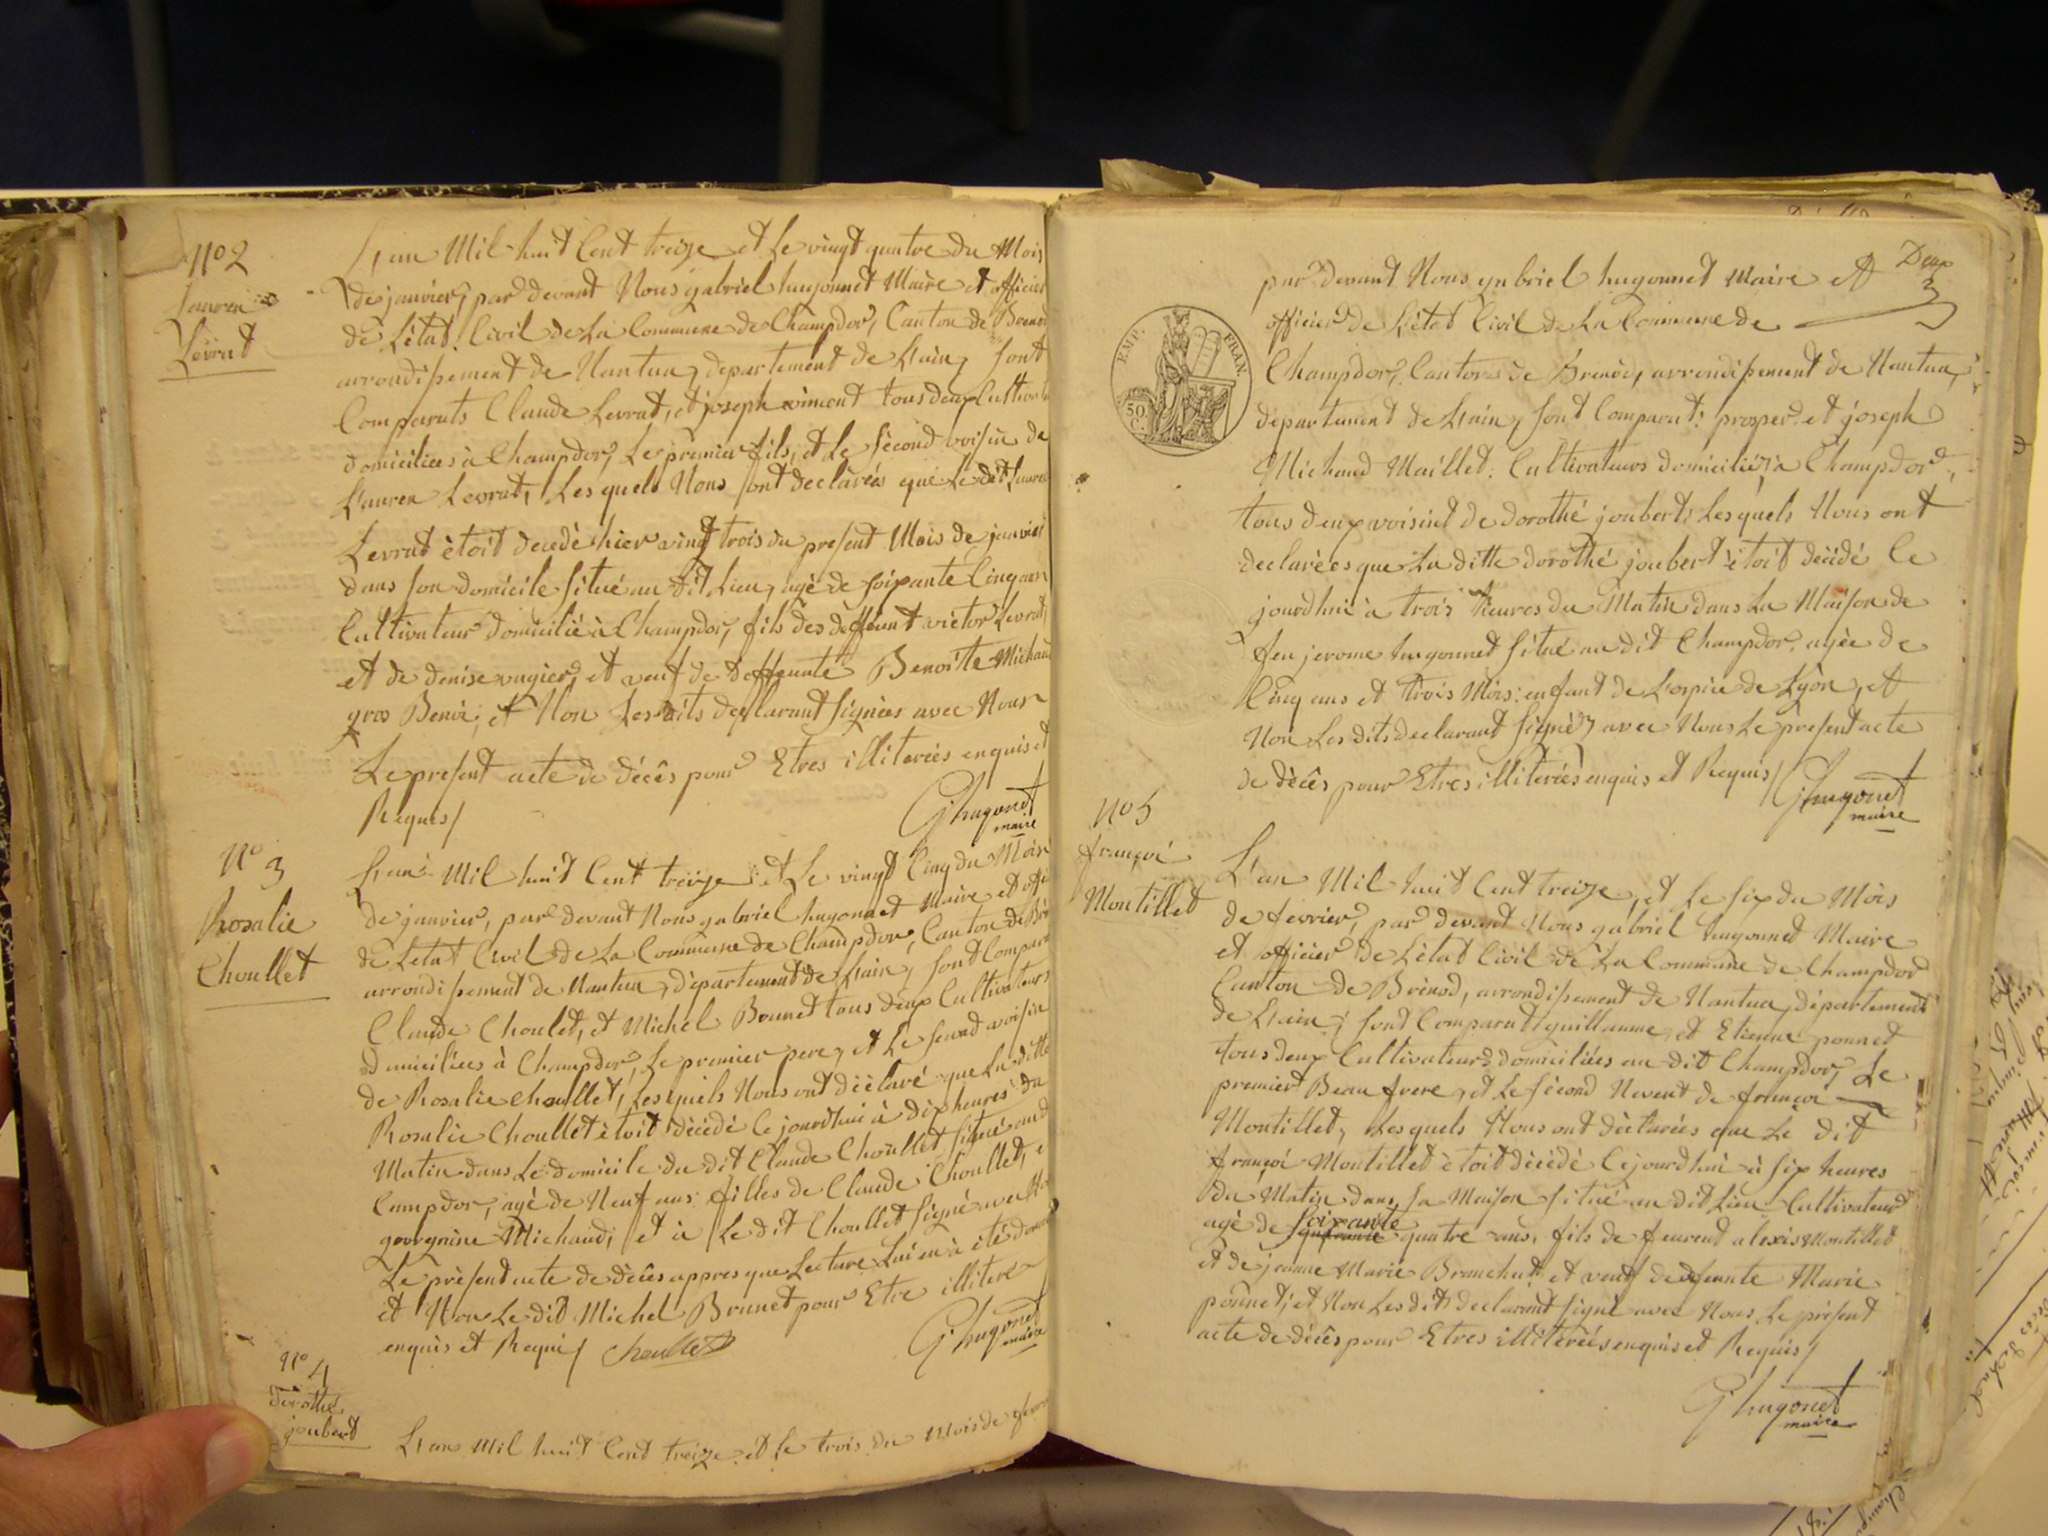 No 2
Lauren
Levrat
L'an Mil huit Cent treize et Le vingt quatre du Mois
de janvier, par devant Nous gabriel hugonnet Maire et officier
de L'état Civil de La Commune de Champdor, Canton de Brenod
arrondissement de Nantua, departement de L'ain, sont
Comparuts Claude Levrat, et joseph vincent tous deux Cultivate
domiciliees à Champdor, Le premier fils, et Le sècond voisin de
Lauren Levrat, Les quels Nous sont declarées que Le dit Lauren
Levrat ètoit decedè hier vingt trois du present Mois de janvier
dans son domicile situé au dit Lieu, agè de soixante Cinq ans
Cultivateur domicilié à Champdor, fils des deffeunt victor Levrat,
et de denise vugier, et veuf de deffeunte Benoite Michaud
gros Benoi, et Non Lesdits declarant Signées avec Nous
Le present acte de dècês pour Etres illiterées enquis et
Requis/
G hugonet
maire
No 3
Rosalie
Choullet
L'an Mil huit Cent treize et Le vingt Cinq du Mois
de janvier, par devant Nous gabriel hugonnet Maire et offi
de L'état Civil de La Commune de Champdor, Canton de Bre
arrondissement de Nantua, departement de L'ain, sont Compara
Claude Choulet, et Michel Brunet tous deux Cultivateurs
domiciliées à Champdor, Le premier pere, et Le second voisin
de Rosalie Choullet, Lesquels Nous ont dèclaré que La ditte
Rosalie Choullet ètoit dècèdé Ce jourdhui à dix heures du
Matin dans Le domicile du dit Claude Choullet situé aud
Campdor, agè de Neuf ans filles de Claude Choullet, e
georgnine Michaud, et à Le dit Choullet Signé avec No
Le prèsent acte de dècês appres que Lecture Lui en à étè donné
et Non Le dit Michel Brunet pour Etre illiteré
enquis et Requis/ Choullet
G hugonet
maire
No 4
dorothé
joubert
L'an Mil huit Cent treize et Le trois du Mois de fevrier
Deux
2
par devant Nous gabriel hugonnet Maire et
officier de L'état Civil de La Commune de
EMP. FRAN.
50 C.
Champdor, Canton de Brenod, arrondissement de Nantua,
dèpartement de L'ain, sont Comparut: prosper et joseph
Michaud Maillet: Cultivateurs domicilièes à Champdor,
tous deux voisins de dorothé joubert, Lesquels Nous ont
declarèes que La ditte dorothé joubert ètoit dècèdé Ce
jourdhui à trois heures du Matin dans La Maison de
feu jerome hugonnet situé au dit Champdor, agèe de
Cinq ans et trois Mois: enfant de L'ospice de Lyon, et
Non Les dits declarant Signèes avec Nous Le prèsent acte
de dècês pour Etres illiterées enquis et Requis/
G hugonet
maire
No 5
françoi
Montillet
L'an Mil huit Cent treize, et Le six du Mois
de fevrier, par devant Nous gabriel hugonnet Maire
et officier de L'état Civil de La Commune de Champdor
Canton de Brènod, arrondissement de Nantua, dèpartement
de L'ain, sont Comparut guillaume, et Etienne ponnet
tous deux Cultivateurs domiciliées au dit Champdor, Le
premiert Beau frere, et Le sècond Neveut de françoi
Montillet, Lesquels Nous ont dèclarées que Le dit
françoi Montillet ètoit dècèdé Cejourdhui à six heures
du Matin dans sa Maison situé au dit Lieu Cultivateur
agè de soixante quatre ans, fils de feurent alexis Montillet
et de jeanne Marie Branchut, et veuf de deffeunte Marie
ponnet, et Non Les dits declarant Signé avec Nous Le prèsent
acte de dècês pour Etres illiterées enquis et Requis/
G hugonet
maire